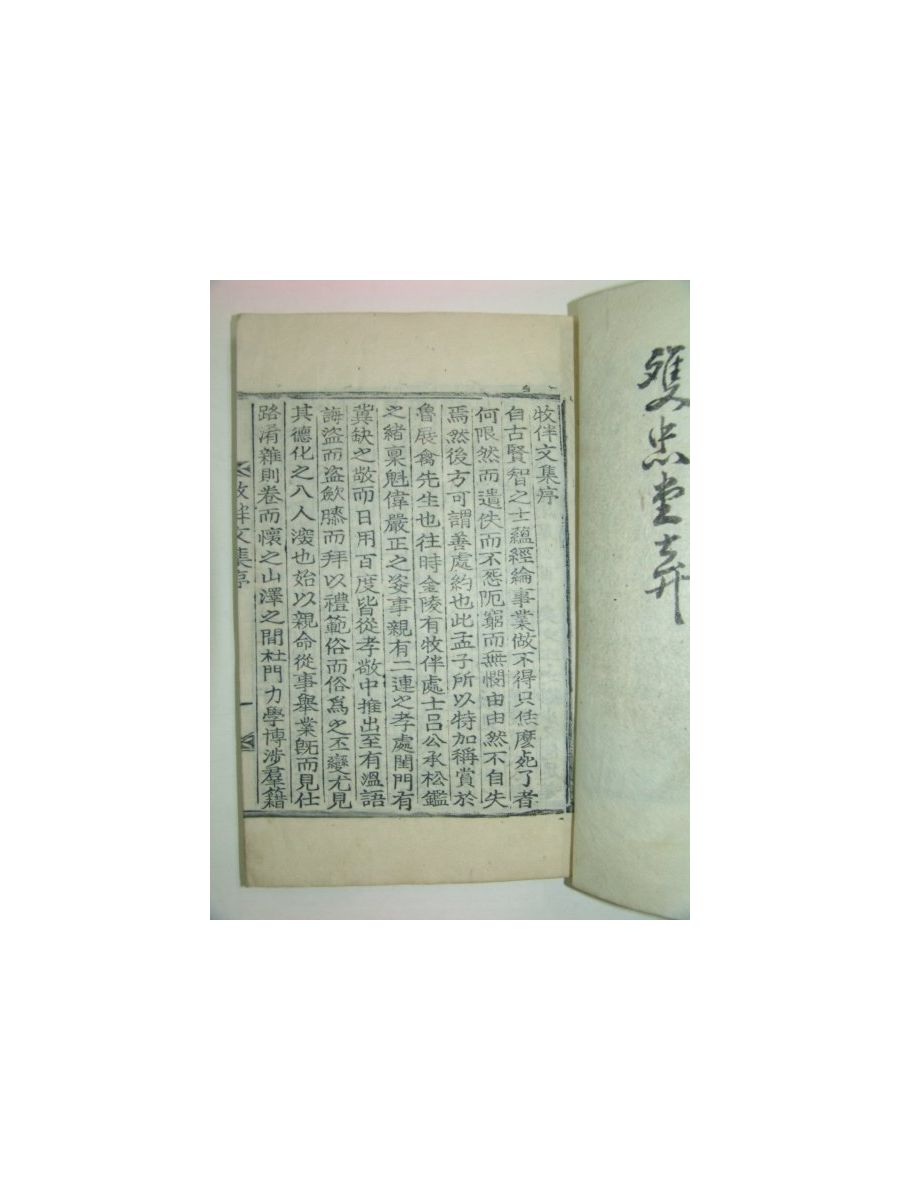 雙忠堂弆
牧伴文集序
自古賢智之士蘊經綸事業做不得只恁麽死了者
何限然而遺佚而不怨阨窮而無憫由由然不自失
焉然後方可謂善處約也此孟子所以特加稱賞於
魯展禽先生也往時金陵有牧伴處士呂公承松鑑
之緒稟魁偉嚴正之姿事親有二連之孝處閨門有
冀缺之敬而日用百度皆從孝敬中推出至有溫語
誨盜而盜歛膝而拜以禮範俗而俗爲之丕變尤見
其德化之入人深也始以親命從事舉業旣而見仕
路淆雜則卷而懷之山澤之間杜門力學博涉羣籍
牧伴文集序
一